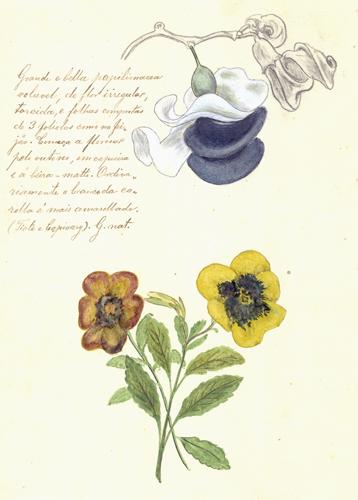 Grande e bella papilionacea
voluvel, de flor irregular,
torcida, e folhas compostas
de 3 foliolos como no fei-
jão. Começa a florir
pelo outono, em capoeira
e á beira-matto. Ordina-
riamente o branco da co-
rolla é mais amarellado.
(Tiete e Capivary). G. nat.